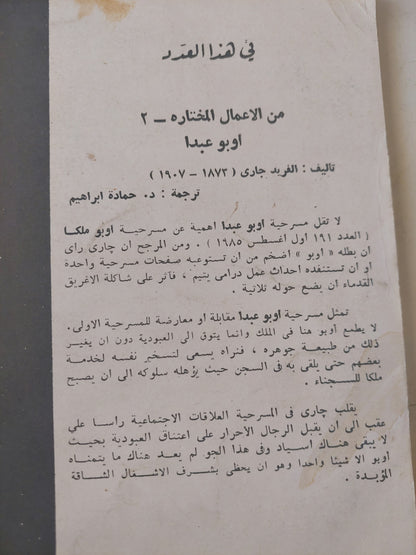 في هذا العدد
من الاعمال المختاره – ٢
اوبو عبدا
تاليف : الفريد جارى ( ١٨٧٣ – ١٩٠٧ )
ترجمة : د. حمادة ابراهيم
لا تقل مسرحية اوبو عبدا اهمية عن مسرحية اوبو ملكا
( العدد ١٩١ أول أغسطس ١٩٨٥ ) . ومن المرجح ان چارى رأى
ان بطله « اوبو » أضخم من ان تستوعبه صفحات مسرحية واحدة
او ان تستنفده احداث عمل درامى يتيم ، فآثر على شاكلة الاغريق
القدماء ان يضع حوله ثلاثية .
تمثل مسرحية اوبو عبدا مقابلة او معارضة للمسرحية الاولى.
لا يطمع أوبو هنا فى الملك وانما يتوق الى العبودية دون ان يغير
ذلك من طبيعة جوهره ، فنراه يسعى لتسخير نفسه لخدمة
بعضهم حتى يلقى به فى السجن حيث يؤهله سلوكه الى ان يصبح
ملكا للسجناء .
يقلب چارى فى المسرحية العلاقات الاجتماعية راسا على
عقب الى أن يقبل الرجال الأحرار على اعتناق العبودية بحيث
لا يبقى هناك اسياد وفى هذا الجو لم يعد هناك ما يتمناه
أوبو الا شيئا واحدا وهو ان يحظى بشرف الاشغال الشاقة
المؤبدة .